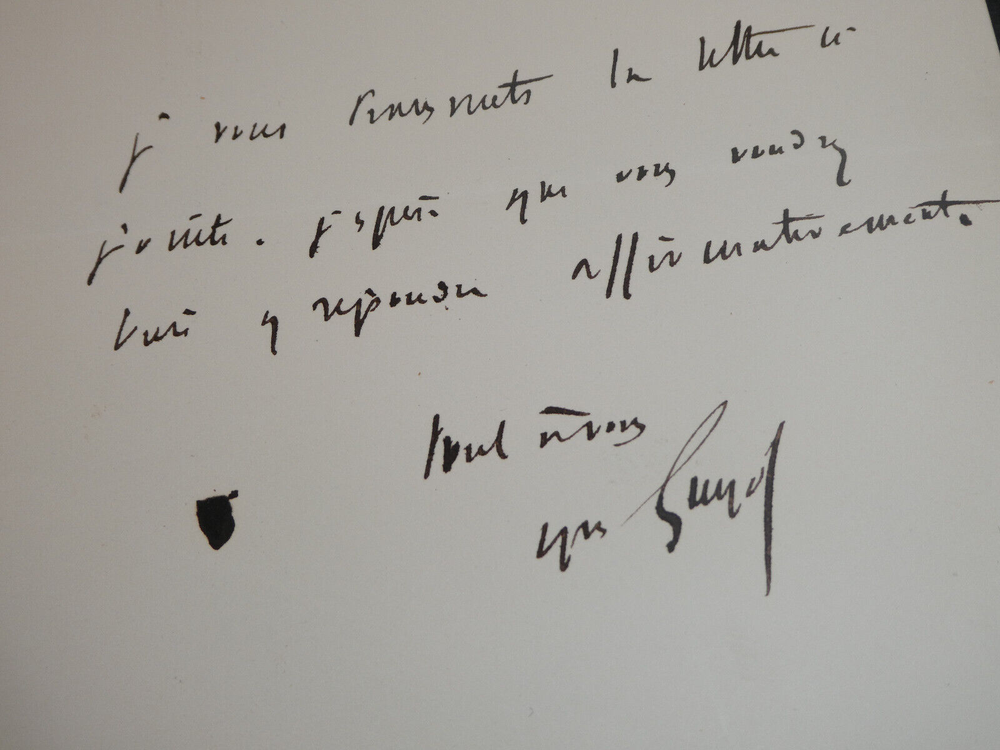 je vous transmets la lettre ci
jointe. j'espère que vous voudrez
bien y répondre affirmativement.
tout à vous
yves Guyot